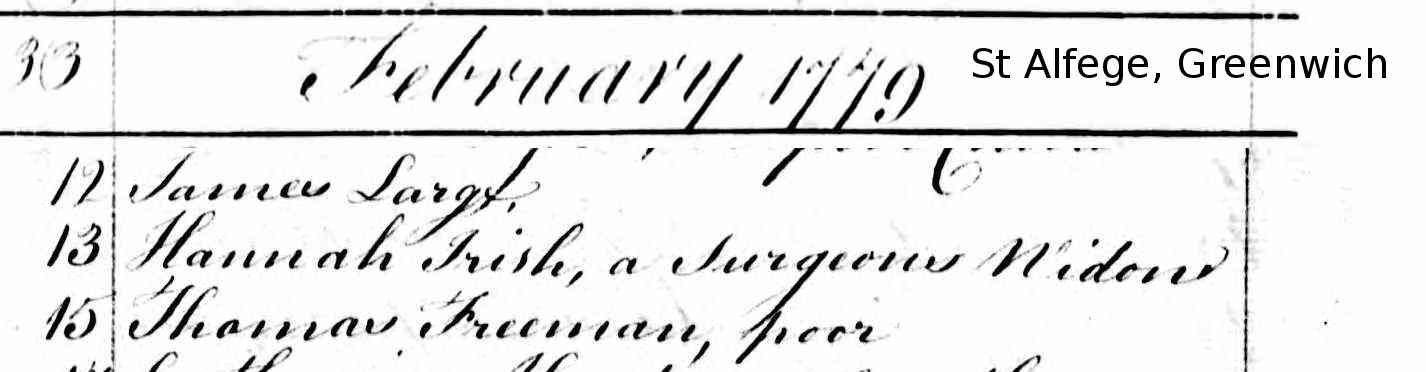 33 February 1779 St Alfege, Greenwich
12 James Large
13 Hannah Irish, a Surgeons Widow
15 Thomas Freeman, poor